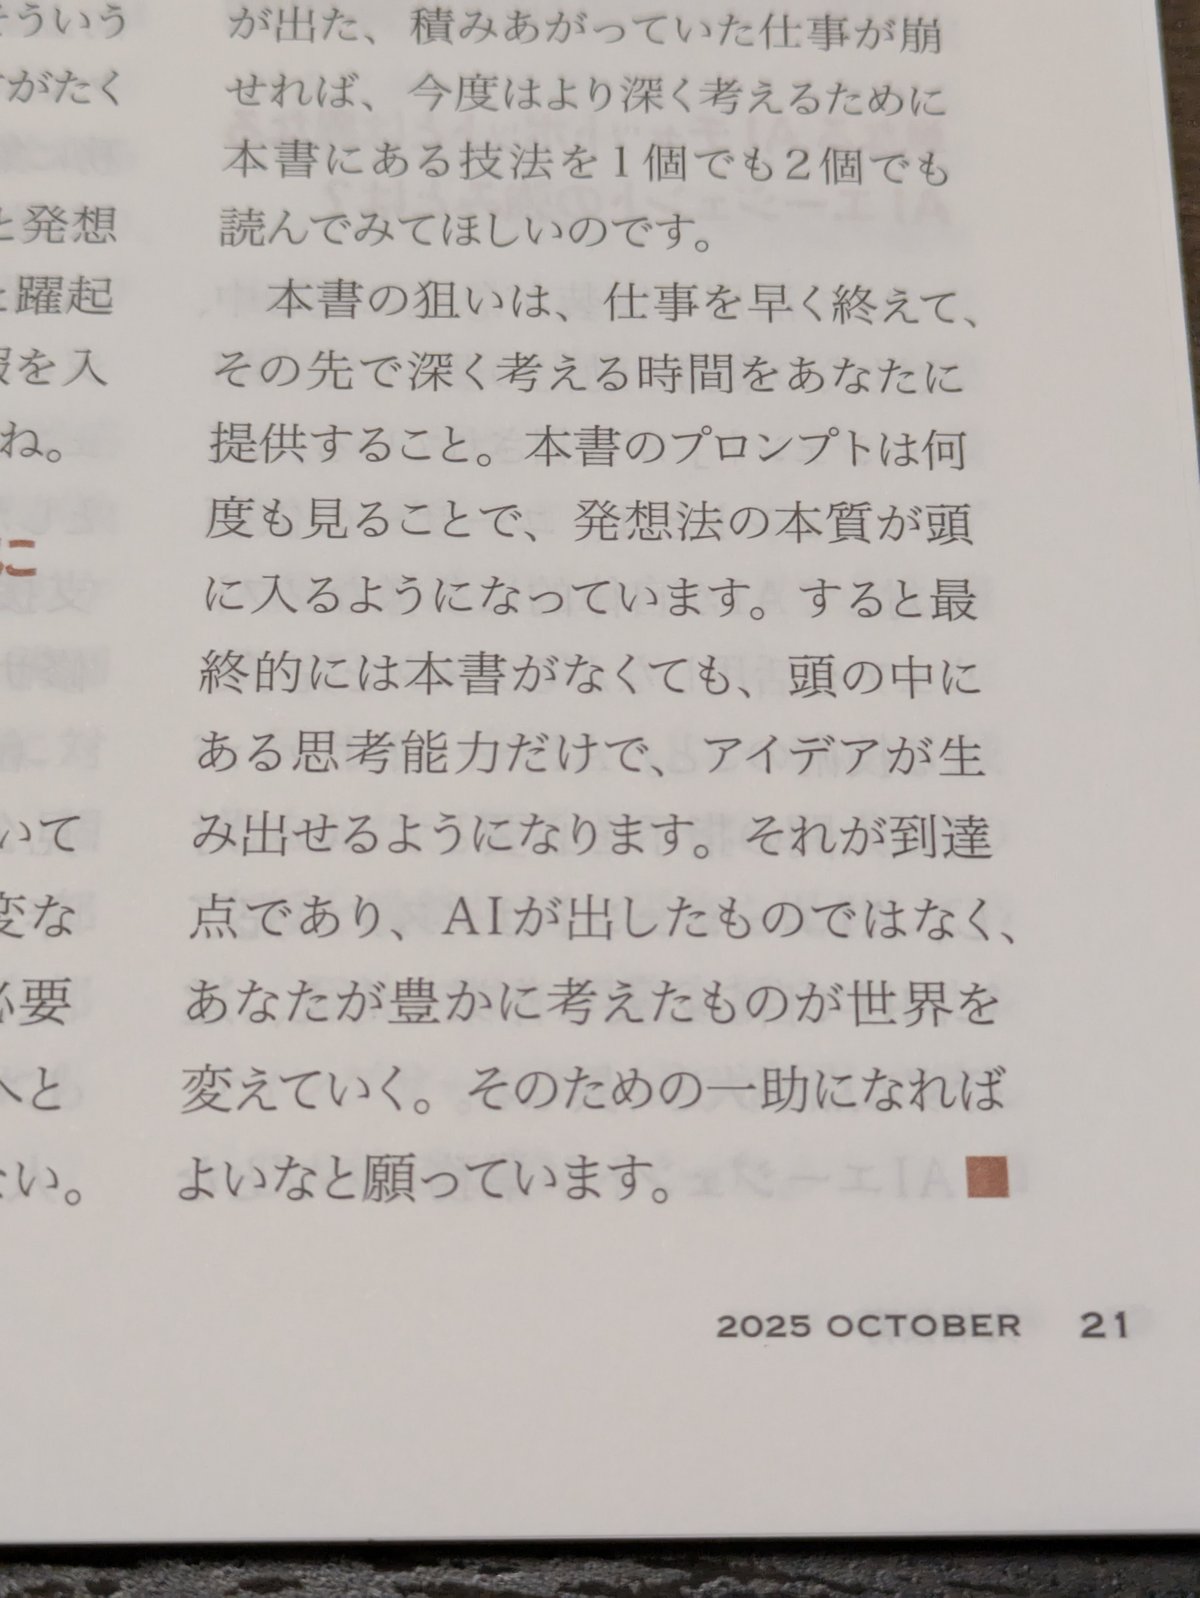 そういう
がたく
と発想
と躍起
報を入
ね。
に
いて
変な
必要
へと
ない。
が出た、積みあがっていた仕事が崩
せれば、今度はより深く考えるために
本書にある技法を1個でも2個でも
読んでみてほしいのです。
本書の狙いは、仕事を早く終えて、
その先で深く考える時間をあなたに
提供すること。本書のプロンプトは何
度も見ることで、発想法の本質が頭
に入るようになっています。すると最
終的には本書がなくても、頭の中に
ある思考能力だけで、アイデアが生
み出せるようになります。それが到達
点であり、AIが出したものではなく、
あなたが豊かに考えたものが世界を
変えていく。そのための一助になれば
よいなと願っています。
2025 OCTOBER 21